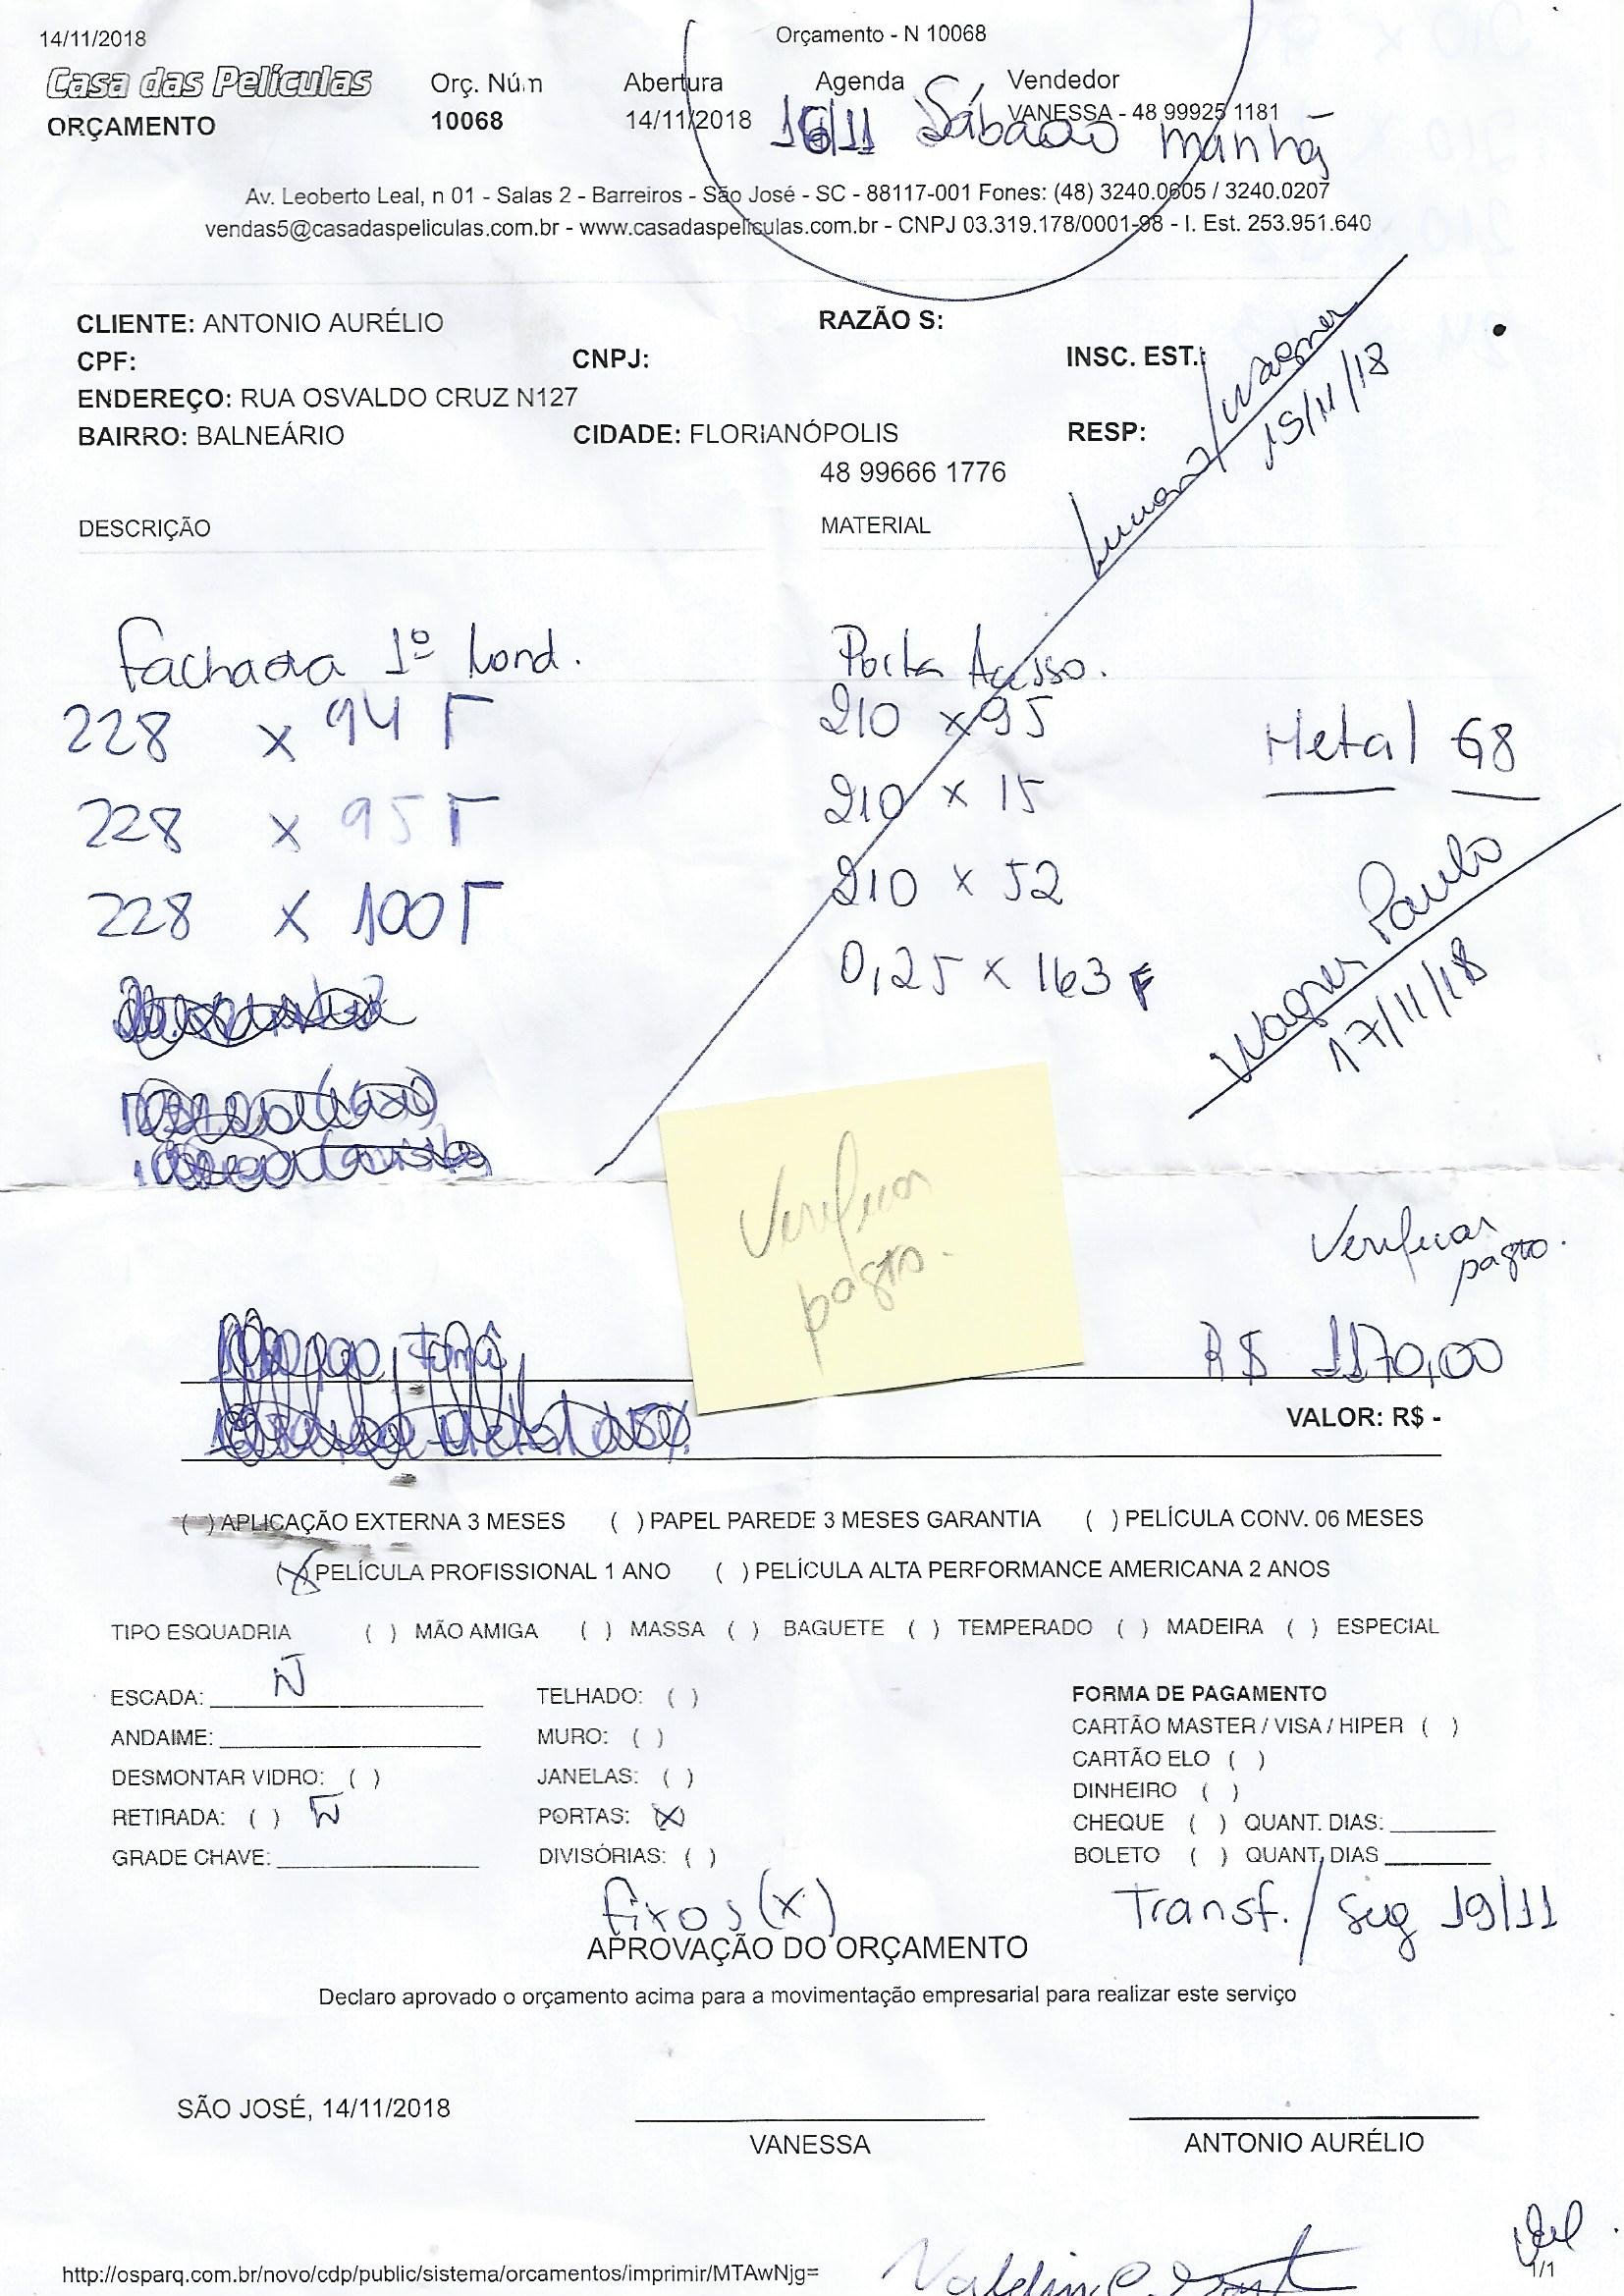 14/11/2018
Orçamento - N 10068
Casa das Películas
ORÇAMENTO
Orç. Núm
10068
Abertura
14/11/2018
Agenda
16/11 Sábado manhã
Vendedor
VANESSA - 48 99925 1181
Av. Leoberto Leal, n 01 - Salas 2 - Barreiros - São José - SC - 88117-001 Fones: (48) 3240.0605 / 3240.0207
vendas5@casadaspeliculas.com.br - www.casadaspeliculas.com.br - CNPJ 03.319.178/0001-98 - I. Est. 253.951.640
CLIENTE: ANTONIO AURÉLIO
RAZÃO S:
CPF:
CNPJ:
INSC. EST.:
ENDEREÇO: RUA OSVALDO CRUZ N127
BAIRRO: BALNEÁRIO
CIDADE: FLORIANÓPOLIS
RESP:
48 99666 1776
Wagner
15/11/18
DESCRIÇÃO
MATERIAL
Fachada 1º
228 x 94 F
228 x 95 F
228 x 100 F
Porta Acesso.
210 x 95
210 x 15
210 x 52
0,25 x 163 F
Metal G8
Wagner Paulo
17/11/18
Verificar
pagto.
Verificar
pagto.
R$ 1170,00
VALOR: R$ -
( ) APLICAÇÃO EXTERNA 3 MESES ( ) PAPEL PAREDE 3 MESES GARANTIA ( ) PELÍCULA CONV. 06 MESES
(X) PELÍCULA PROFISSIONAL 1 ANO ( ) PELÍCULA ALTA PERFORMANCE AMERICANA 2 ANOS
TIPO ESQUADRIA ( ) MÃO AMIGA ( ) MASSA ( ) BAGUETE ( ) TEMPERADO ( ) MADEIRA ( ) ESPECIAL
ESCADA: N
ANDAIME:
DESMONTAR VIDRO: ( )
RETIRADA: ( ) N
GRADE CHAVE:
TELHADO: ( )
MURO: ( )
JANELAS: ( )
PORTAS: (X)
DIVISÓRIAS: ( )
fixos (x)
FORMA DE PAGAMENTO
CARTÃO MASTER / VISA / HIPER ( )
CARTÃO ELO ( )
DINHEIRO ( )
CHEQUE ( ) QUANT. DIAS:
BOLETO ( ) QUANT. DIAS
Transf. / seg 19/11
APROVAÇÃO DO ORÇAMENTO
Declaro aprovado o orçamento acima para a movimentação empresarial para realizar este serviço
SÃO JOSÉ, 14/11/2018
VANESSA
ANTONIO AURÉLIO
http://osparq.com.br/novo/cdp/public/sistema/orcamentos/imprimir/MTAwNjg=
1/1